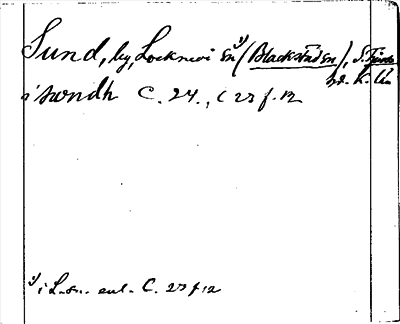 Sund, by, Locknevi sn ¹) (Blackstad sn), S. Tjust
hd. K. län
i swndh C. 24., C 23 f. 12
¹) i L. sn. enl. C. 23 f 12